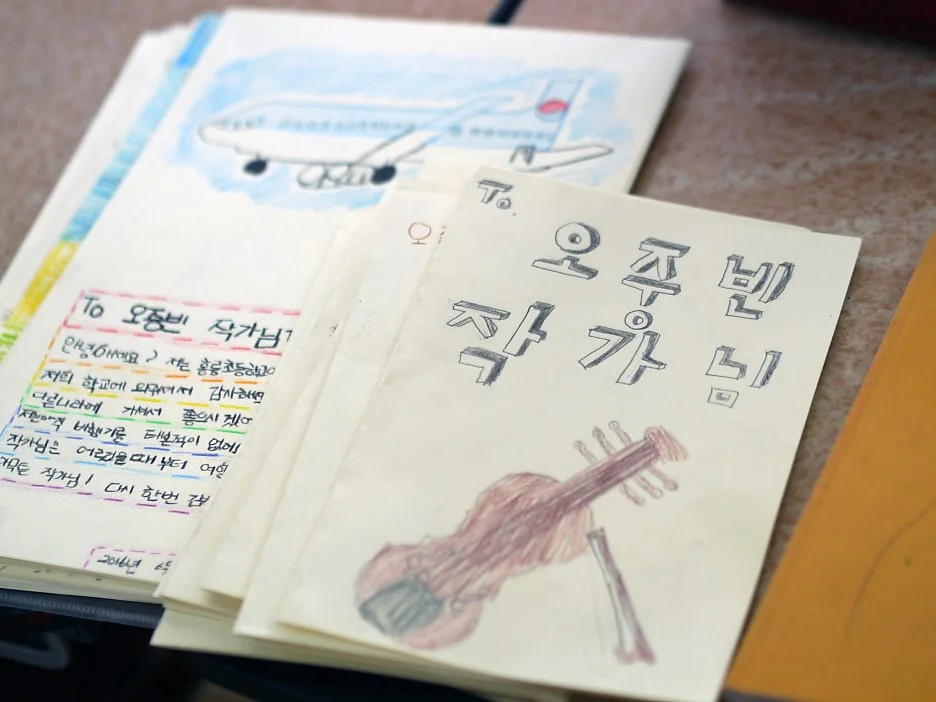 To.
오주빈
작가님
오
To 오중빈 작가님
안녕하세요 저는 홍릉초등학교
저희 학교에 와주셔서 감사해요
다른나라에 가셔서 좋으시겠어
저는아직 비행기를 타본적이 없는데
작가님은 어렸을때부터 여행
작가님! 다시 한번 감사
2016년 6월